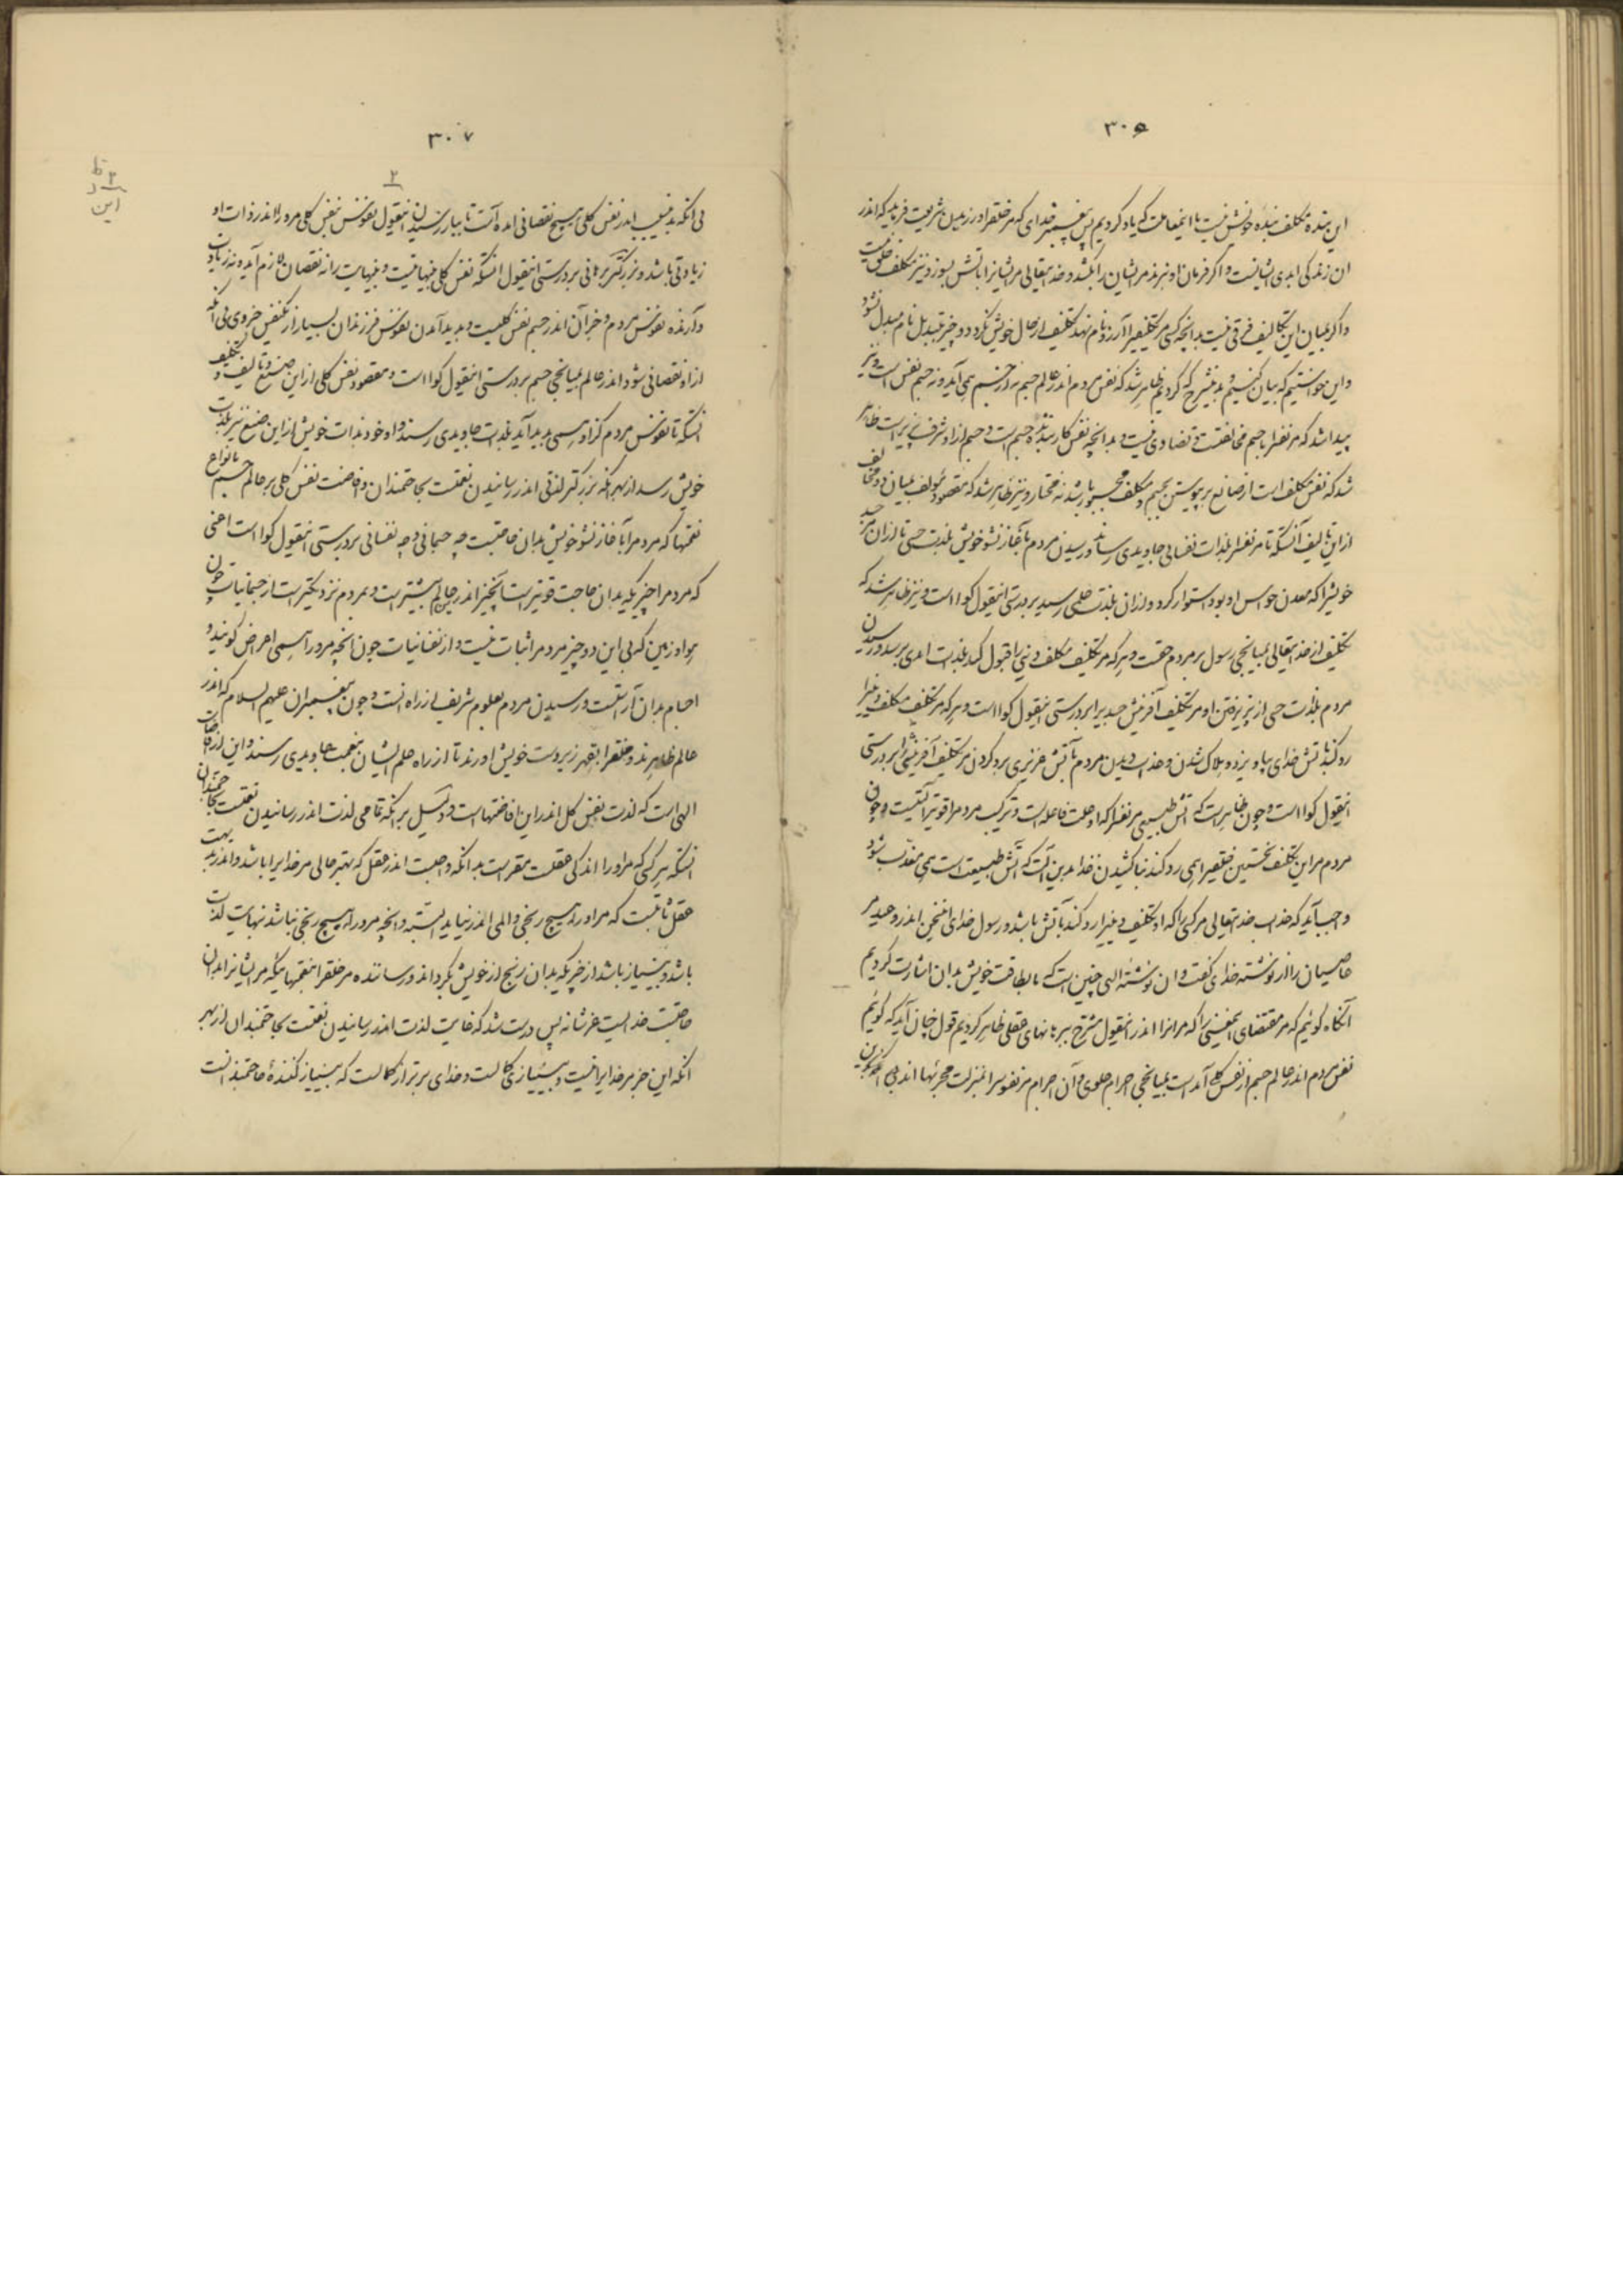 ۳۰۵
این بنده مکلف بنده خویش نیست با اینمعاملت که یاد کردیم پس پیغمبر خدای که مر خلق را ورزیدن شریعت فرماید که اندر
آن زندگی ابدی ایشانست و اگر فرمان او نبرند مر ایشان را بکشد و خدایتعالی مر ایشانرا باتش بسوزد نیز مکلف خلق نیست
و اگر میان این تکالیف فرقی نیست بدانچه کسی مر تکلیفی را آرزو نام نهد تکلیف از حال خویش نگردد و چیز بتبدیل نام مبدل نشود
و این خواستیم که بیان کنیم و بدین شرح که کردیم ظاهر شد که نفس مردم اندر عالم جسم نه از جسم همی آید و نه جسم نفس است و نیز
پیدا شد که مر نفس را با جسم مخالفتست و تضادی نیست بدانچه نفس کار بندنده جسم است و جسم از او شرف پذیر است ظاهر
شد که نفس مکلف است از صانع بر پیوستن بجسم و مکلف مجبور باشد نه مختار و نیز ظاهر شد که مقصود مؤلف میان دو مخالف
از این تالیف آنستکه تا مر نفس را بلذات نفسانی جاویدی رساند و رسیدن مردم بآغاز نشو خویش بلذت حسی تا از آن مر جسد
خویش را که معدن حواس او بود استوار کرد و از آن بلذت علمی رسید بر درستی اینقول گوا است و نیز ظاهر شد که
تکلیف از خدایتعالی بمیانجی رسول بر مردم حقست و هر که مر تکلیف مکلف دینی را قبول کند بلذت ابدی برسد و رسیدن
مردم بلذت حسی از پذیرفتن او مر تکلیف آفرینش جسد برا بر درستی اینقول گوا است و هر که مر تکلیف مکلف دینی را
رد کند باتش خدای بیاویزد و هلاک شدن و عذاب دیدن مردم بآتش غریزی برد کردن مر تکلیف آفرینشی را بر درستی
اینقول گوا است و چون ظاهر است که آتش طبیعی مر نفس را که او علت فاعله است و ترکیب مردم را قویتر آلتیست و چون
مردم مر این تکلیف نخستین خلقی را همی رد کند بناکشیدن غذا بدین آلت که آتش طبیعت است همی معذب شود
واجب آید که عذاب خدایتعالی مر کسی را که او تکلیف دینی را رد کند بآتش باشد و رسول خدای اینچنین اندر وعید مر
عاصیان را از نوشته خدای گفت و آن نوشته الهی چنین است که ما بطاقت خویش بدان اشارت کردیم
آنگاه گوئیم که مر مقتضای این معنی را که مر آنرا اندر اینقول مشرح ببرهانهای عقلی ظاهر کردیم قول چنان آید که گوئیم
نفس مردم اندر عالم جسم از نفس کلی آمده است بمیانجی اجرام علوی و آن اجرام مر نفوس را بمنزلت مجریها اند
۳۰۷
۲
بی آنکه بدین سبب اندر نفس کلی هیچ نقصانی آمده است تا بباز رسیدن اینقول نفوس بنفس کلی مر او را اندر ذات او
زیادتی باشد و بزرگتر برهانی بر درستی اینقول آنستکه نفس کلی بینهایتست و بینهایت را نه نقصان لازم آید و نه زیادت
و آرنده نفوس مردم و جز آن اندر جسم نفس کلیست و پدید آمدن نفوس فرزندان بسیار از یکنفس جزوی بی آنکه
از او نقصانی شود اندر عالم بمیانجی جسم بر درستی اینقول گوا است و مقصود نفس کلی از این صنع و تالیف و تکلیف
آنستکه تا نفوس مردم کز او همی پدید آید بلذات جاویدی رسند و او خود بذات خویش از این صنع نیز بلذت
خویش رسد از بهر آنکه بزرگتر لذتی اندر رسانیدن نعمتست بحاجتمندان و افاضت نفس کلی بر عالم جسم بانواع
نعمتها که مردم را بآغاز نشو خویش بدان حاجتست چه جسمانی و چه نفسانی بر درستی اینقول گوا است اعنی
که مردم را چیزیکه بدان حاجت قویتر است آنچیز اندر عالم بیشتر است و بمردم نزدیکتر است از جسمانیات چون
هوا و زمین که بی این دو چیز مردم را ثبات نیست و از نفسانیات چون آنچه مر او را همی اعراض گویند و
اجسام بدان آراستست و رسیدن مردم بعلوم شریف از راه آنست و چون پیغمبران علیهم السلام که اندر
عالم ظاهرند و خلق را بقهر زیر دست خویش آورند تا از راه علم ایشان بنعمت جاویدی رسند و این از افاضات
الهی است که لذت نفس کل اندر این افاضتهاست و دلیل بر آنکه تمامی لذت اندر رسانیدن نعمتست بحاجتمندان
آنستکه هر کسی که مر او را اندکی عقلست مقر است بدانکه واجبست اندر عقل که بهتر حالی مر خدایرا باشد و اندر بدیهت
عقل ثابتست که مر او را هیچ رنجی و المی اندر نیاید البته و آنچه مر او را هیچ رنجی نباشد بنهایت لذت
باشد و بینیاز باشد از چیزیکه بدان رنج از خویش بگرداند و رساننده مر خلق را بنعمتهائیکه مر ایشانرا بدان
حاجتست خدایست عز شانه پس درست شد که غایت لذت اندر رسانیدن نعمتست بحاجتمندان از بهر
آنکه این جز مر خدایرا نیست و بینیازی کمالست و خدای برتر از کمالست که بینیاز کننده حاجتمندانست
۲ ظ
این